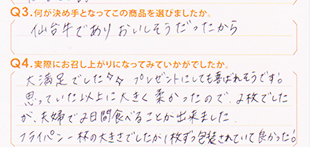 Q3.何が決め手となってこの商品を選びましたか。
仙台牛でありおいしそうだったから
Q4.実際にお召し上がりになってみていかがでしたか。
大満足でした☆☆ プレゼントにしても喜ばれそうです。
思っていた以上に大きく柔かったので、2枚でした
が、夫婦で2日間食べることが出来ました。
フライパン一杯の大きさでしたが1枚ずつ包装されていて良かった!